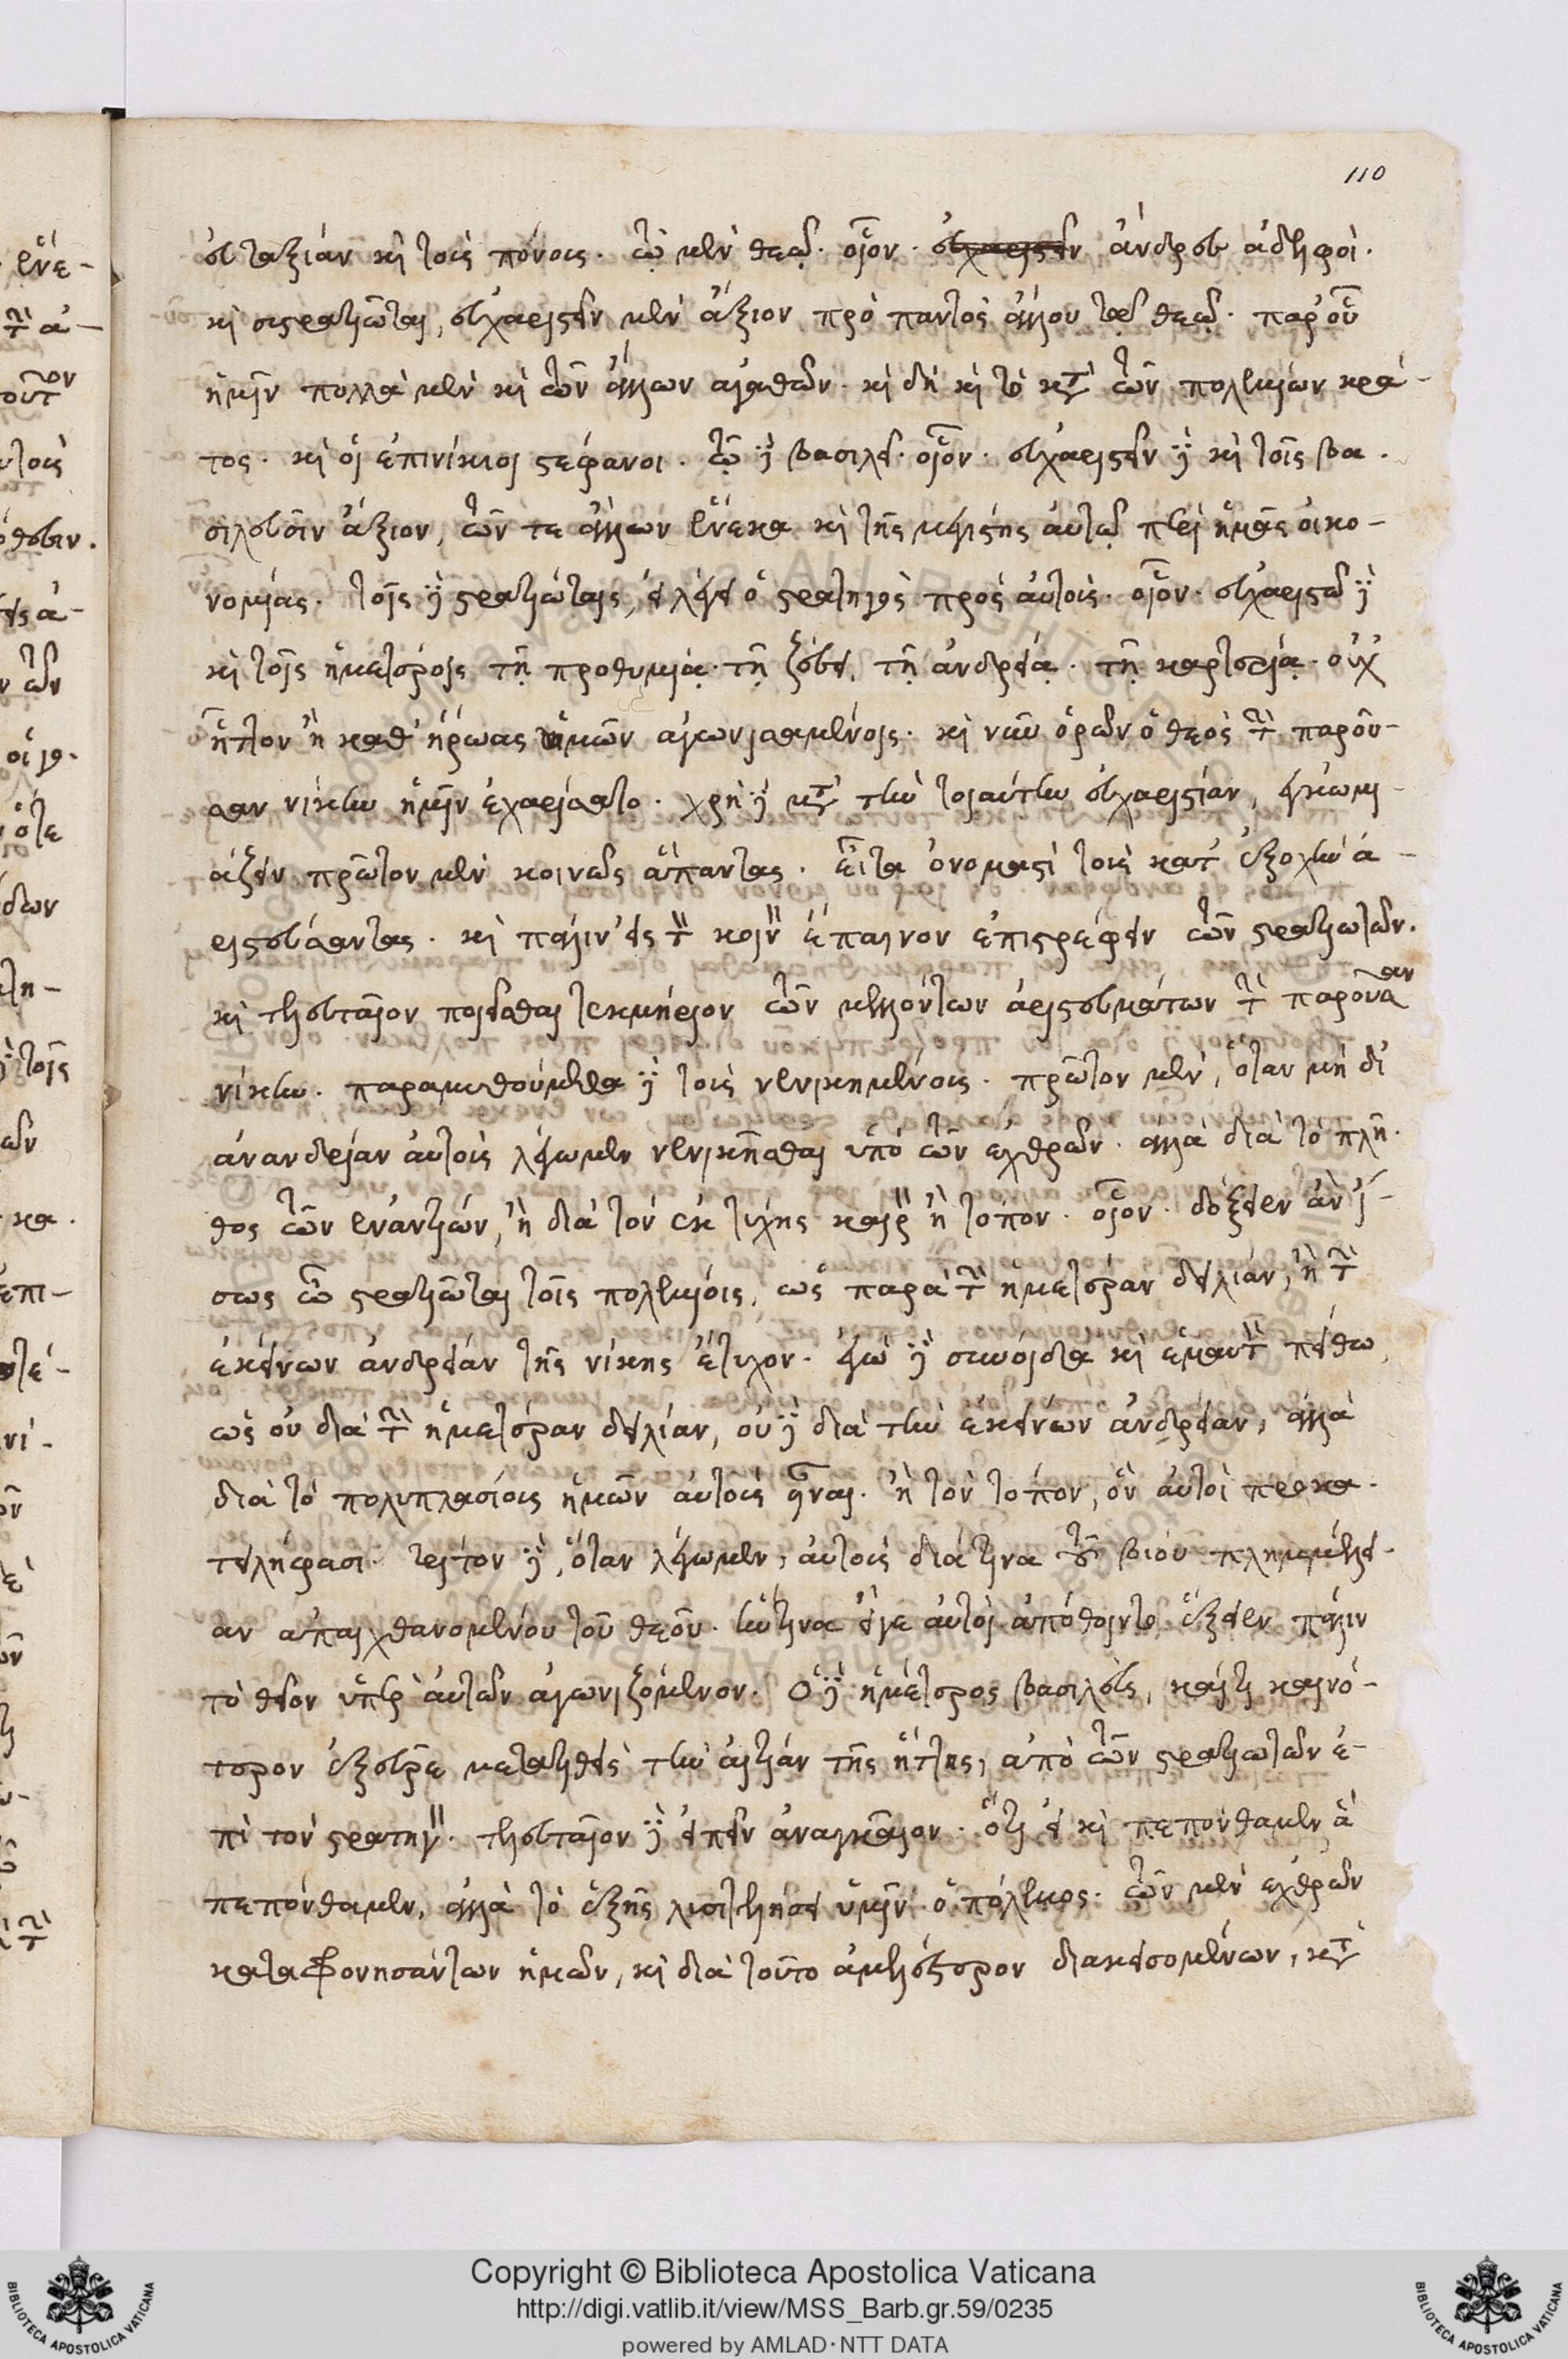 110
εὐταξίαν καὶ τοὺς πόνους. τῷ μὲν θεῷ. οἷον. εὐχαριστεῖν ἄνδρες ἀδελφοὶ.
καὶ στρατιῶται, εὐχαριστεῖν μὲν ἄξιον πρὸ παντὸς ἄλλου τῷ θεῷ. παρ' οὗ
ἡμῖν πολλὰ μὲν καὶ τῶν ἄλλων ἀγαθῶν. καὶ δὴ καὶ τὸ κατὰ τῶν πολεμίων κρά-
τος. καὶ οἱ ἐπινίκιοι στέφανοι. τῷ δὲ βασιλεῖ. οἷον. εὐχαριστεῖν δὲ καὶ τοῖς βα-
σιλεῦσιν ἄξιον, τῶν τε ἄλλων ἕνεκα καὶ τῆς μεγίστης αὐτῷ περὶ ἡμᾶς οἰκο-
νομίας. τοῖς δὲ στρατιώταις, εἰ λέγει ὁ στρατηγὸς πρὸς αὐτοὺς. οἷον. εὐχαριστῶ δὲ
καὶ τοῖς ἡμετέροις τῇ προθυμίᾳ. τῇ ζέσει, τῇ ἀνδρείᾳ. τῇ καρτερίᾳ. οὐχ
ἧττον ἢ καθ' ἥρωας ἡμῶν ἀγωνισαμένοις. καὶ νῦν ὁρῶν ὁ θεὸς τὴν παροῦ-
σαν νίκην ἡμῖν ἐχαρίσατο. χρὴ δὲ μετὰ τὴν τοιαύτην εὐχαριστίαν, ἐγκωμι-
άζειν πρῶτον μὲν κοινῶς ἅπαντας. εἶτα ὀνομαστὶ τοὺς κατ' ἐξοχὴν ἀ-
ριστεύσαντας. καὶ πάλιν εἰς τὸν κοινὸν ἔπαινον ἐπιστρέφειν τῶν στρατιωτῶν.
καὶ τελευταῖον ποιεῖσθαι τεκμήριον τῶν μελλόντων ἀριστευμάτων τὴν παροῦσαν
νίκην. παραμυθούμεθα δὲ τοὺς νενικημένους. πρῶτον μὲν, ὅταν μὴ δι'
ἀνανδρείαν αὐτοὺς λέγωμεν νενικῆσθαι ὑπὸ τῶν ἐχθρῶν. ἀλλὰ διὰ τὸ πλῆ-
θος τῶν ἐναντίων, ἢ διὰ τὸν ἐκ τύχης καιρὸν ἢ τόπον. οἷον. δόξειεν ἂν ἴ-
σως ὦ στρατιῶται τοῖς πολεμίοις, ὡς παρὰ τὴν ἡμετέραν δειλίαν, ἢ τὴν
ἐκείνων ἀνδρείαν τῆς νίκης ἔτυχον. ἐγὼ δὲ συνοῖδα καὶ ἐμαυτὸν πείθω,
ὡς οὐ διὰ τὴν ἡμετέραν δειλίαν, οὐ δὲ διὰ τὴν ἐκείνων ἀνδρείαν, ἀλλὰ
διὰ τὸ πολυπλασίους ἡμῶν αὐτοὺς εἶναι. ἢ τὸν τόπον, ὃν αὐτοὶ προκα-
τειλήφασι. τρίτον δὲ, ὅταν λέγωμεν, αὐτοὺς διά τινα τοῦ βίου πλημμέλει-
αν ἀπαιχθανομένου τοῦ θεοῦ. ἥντινα εἴγε αὐτοὶ ἀπόθοιντο, ἕξειεν πάλιν
τὸ θεῖον ὑπὲρ αὐτῶν ἀγωνιζόμενον. ὁ δὲ ἡμέτερος βασιλεὺς, καί τι καινό-
τερον ἐξεῦρε μετατιθεὶς τὴν αἰτίαν τῆς ἥττης, ἀπὸ τῶν στρατιωτῶν ἐ-
πὶ τὸν στρατηγὸν. τελευταῖον δὲ εἰπεῖν ἀναγκαῖον. ὅτι εἰ καὶ πεπόνθαμεν ἃ
πεπόνθαμεν, ἀλλὰ τὸ ἑξῆς λυσιτελήσει ὑμῖν ὁ πόλεμος. τῶν μὲν ἐχθρῶν
καταφρονησάντων ἡμῶν, καὶ διὰ τοῦτο ἀμελέστερον διακεισομένων, κατὰ
Copyright © Biblioteca Apostolica Vaticana
http://digi.vatlib.it/view/MSS_Barb.gr.59/0235
powered by AMLAD·NTT DATA